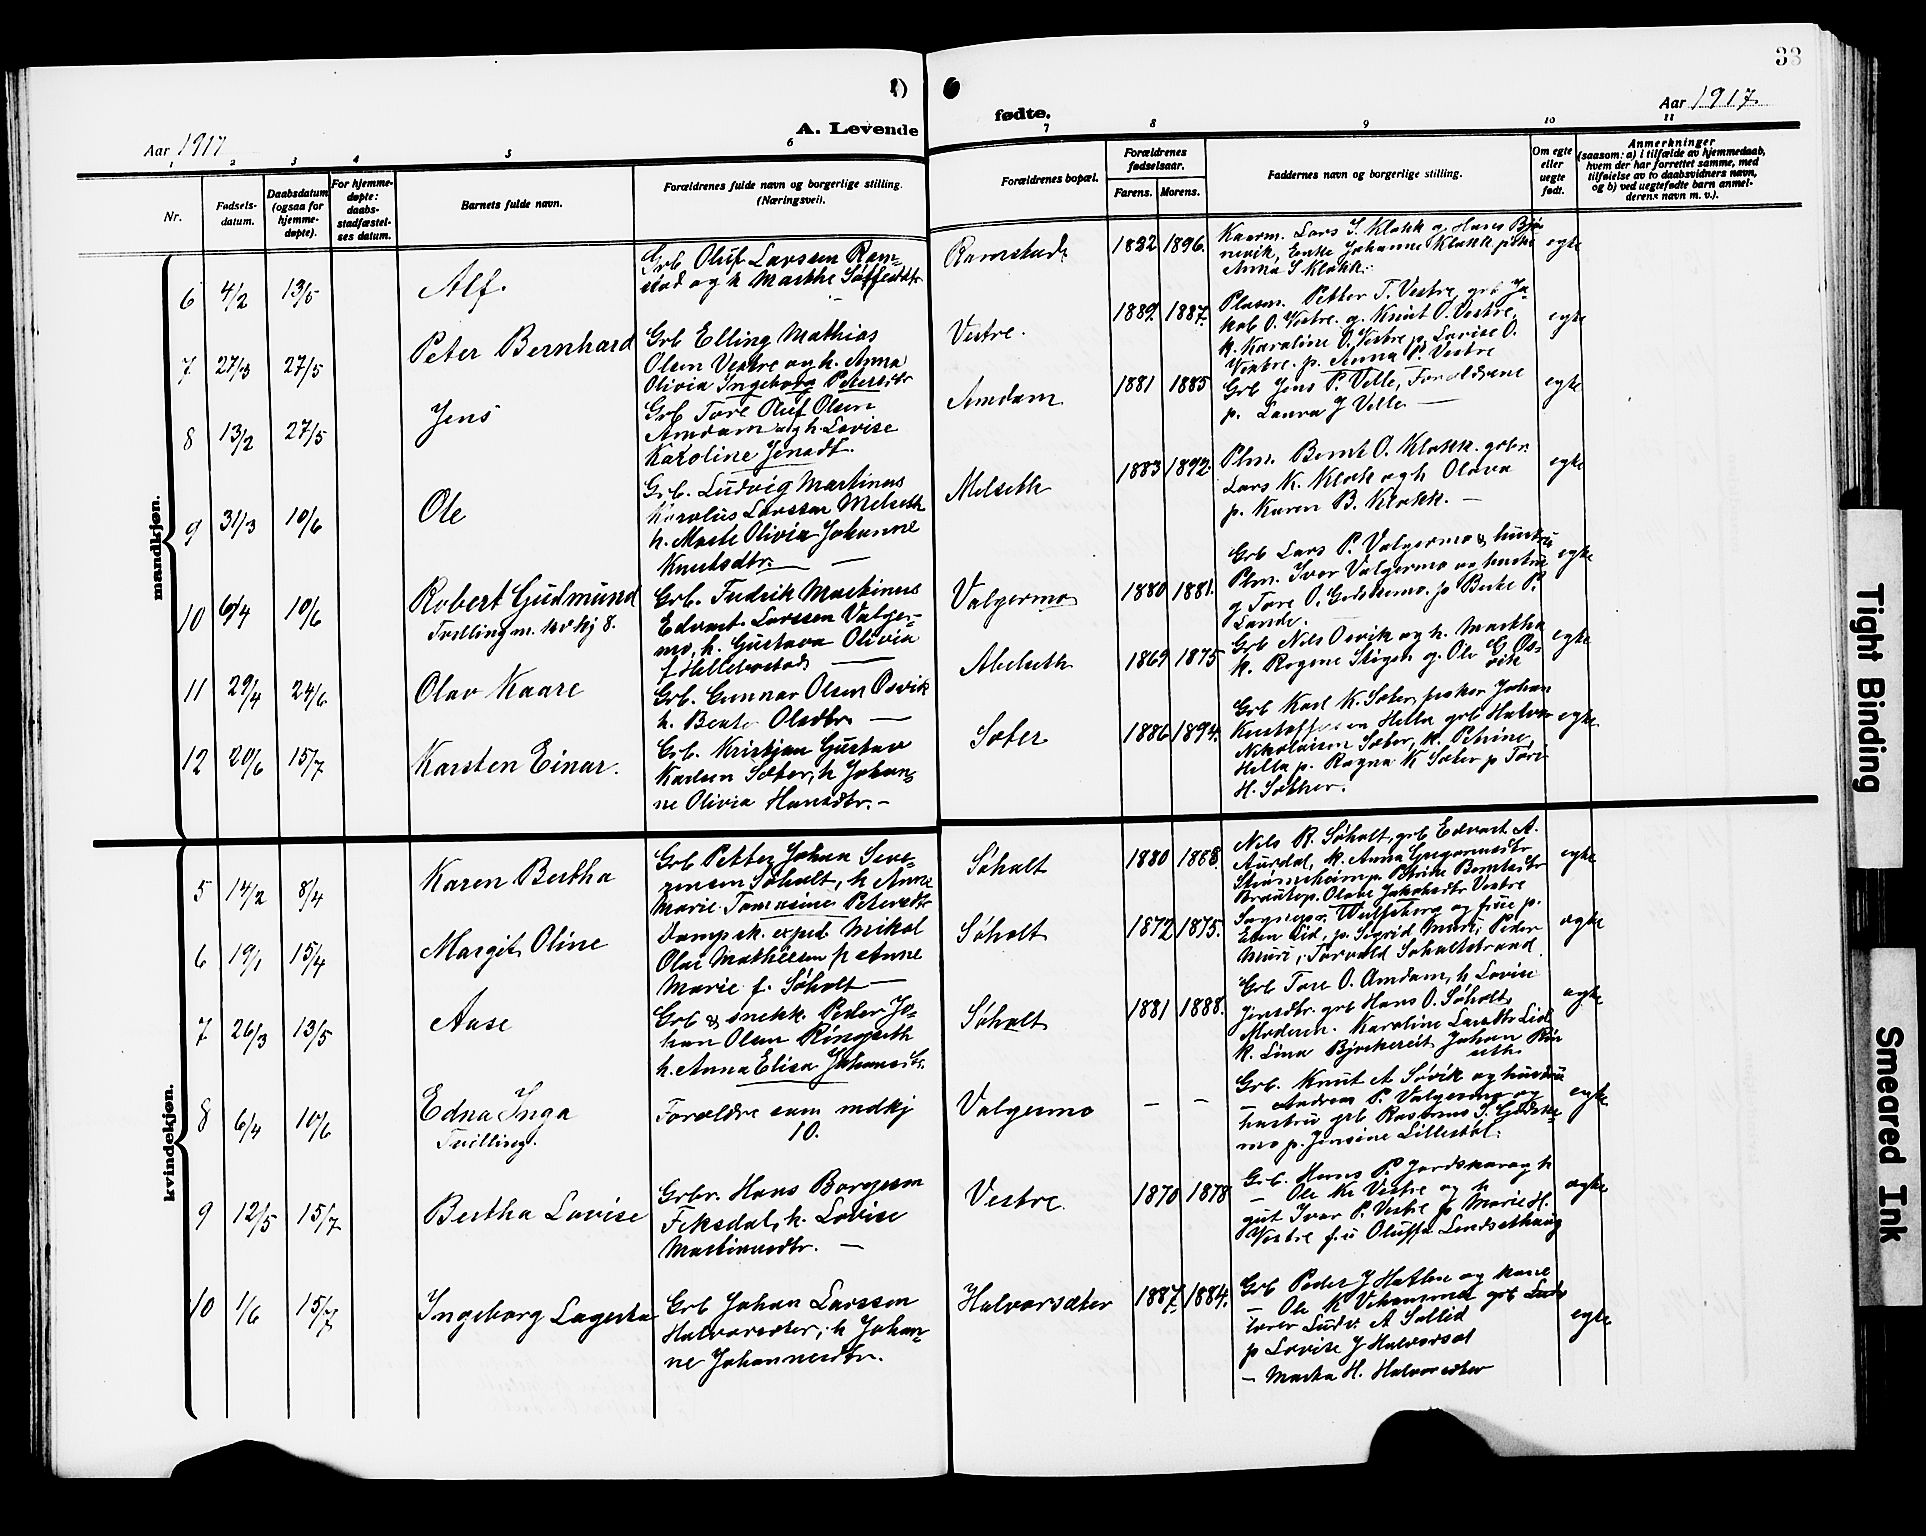 33
Aar 1917
A. Levende
fødte.
Aar 1917
1 2 3 4 5 6 7 8 9 10 11
Nr.
Fødsels-
datum.
Daabsdatum
(ogsaa for
hjemme-
døpte).
For hjemme-
døpte:
daabs-
stadfæstel-
ses datum.
Barnets fulde navn.
Forældrenes fulde navn og borgerlige stilling.
(Næringsvei).
Forældrenes bopæl.
Forældrenes
fødselsaar.
Farens. Morens.
Faddernes navn og borgerlige stilling.
Om egte
eller
uegte
født.
Anmerkninger
(saasom: a) i tilfælde av hjemmedaab,
hvem der har forrettet samme, med
tilføielse av to daabsvidners navn,
og b) ved uegtefødte barn anmel-
derens navn m. v.).
mandkjøn.
6 4/2 13/5 Alf.
Grb Oluf Larssen Ram-
stad og h Marthe
Ramstad 1882 1896.
Kaarm. Lars I. Klokk og Hans Bjø
nevik, Enke Johanne Klokk pike
Anna S Klokk.
egte
7 27/3 27/5 Peter Bernhard
Grb Elling Mathias
Olsen Vestre og h. Anna
Olivia Ingeborg Petersdtr
Vestre. 1889. 1887.
Plasm. Petter T. Vestre, grb Ja-
kob O. Vestre. g. Knut O. Vestre,
k. Karoline O. Vestre p. Lovise O.
Vestre. p. Anna P. Vestre
egte
8 13/2 27/5 Jens
Grb Tore Oluf Olsen
Amdam og h Lovise
Karoline Jensdt.
Amdam 1881 1885
Grb Jens P. Velle, Forældrene
p. Laura J Velle —
egte
9 31/3 10/6 Ole
Grb. Ludvig Martinus
Karolus Larssen Melseth
h. Marte Olivia Johanne
Knutsdtr. —
Melseth 1883 1892.
Plm. Bernt O. Klokk. grbr.
Lars K. Klokk og h Olava
p. Karen B. Klokk. —
egte
10 6/4 10/6 Robert Gudmund
Tvilling m. kv kj 8.
Grb. Fredrik Martinus
Edvart Larssen Valger-
mo, h. Gustava Olivia
f. Hellebostad —
Valgermo 1880 1881.
Grb Lars P. Valgermo & hustru
Plm. Iver Valgermo og hustru
g Tore O. Gjedskemo. p Berte P.
Lande.
egte
11 29/4 24/6 Olav Kaare
Grb. Gunnar Olsen Osvik
h. Beate Olsdtr. —
Abelseth 1869 1875
Grb Nils Osvik og h. Martha
k. Ragne Stigen g. Ole G Os-
vik
egte
12 20/6 15/7 Karsten Einar.
Grb. Kristjan Gustav
Karlsen Sæter, h Johan-
ne Olivia Hansdtr. —
Sæter 1886 1894.
Grb Karl K. Sæter, fisker Johan
Kristoffersen Hella grb Halvor
Nikolaisen Sæter, k. Petrine
Hella p. Ragna K Sæter p Tore
H. Sæther.
egte
kvindekjøn.
5 14/2 8/4 Karen Bertha
Grb Petter Johan Seve-
rensen Søholt, h Anne
Marie Tomasine Petersdtr
Søholt 1880 1868
Nils R. Søholt, grb Edvart A.
Aurdal, k. Anna Gregoriusdtr
Strømsheim p. Petrine Berntsdtr
Brautep. Olave Jakobsdtr Vestre
egte
6 19/1 15/4 Margit Oline
Dampsk. exped. Nikol
Olai Mathiesen h Anne
Marie f. Søholt —
Søholt 1872 1875.
Wulfsberg og frue p.
Lid, p. Sigrid Muri, Peder
Muri, Torvald Søholtstrand
egte
7 26/3 13/5 Aase
Grb & snekk. Peder Jo-
han Olsen Ringseth
h. Anna Elisa Johansdtr.
Søholt 1881 1888.
Grb Tore O. Amdam, h Lovise
Jensdtr. grb Hans O. Søholt,
Moderen. Karoline Larsdtr Lid
k. Lina Bjerkereit Johan Rin
seth
egte
8 6/4 10/6 Edna Inga
Tvilling.
Forældre som mdkj
10.
Valgermo — —
Grb. Knut A Søvik og hustru
— Andreas P. Valgermo og
hustru grb Rasmus I. Gjedske-
mo p. Jensine Lillestøl.
egte
9 12/5 15/7 Bertha Lovise
Grbr. Hans Borgesen
Fiksdal, h. Lovise
Martinusdtr. —
Vestre. 1870 1878
Grb. Hans P. og h
— Ole Kr Vestre og h
gut Ivar P. Vestre p Marie H.
Vestre
egte
10 1/6 15/7 Ingeborg Lagerta
Grb Johan Larssen
Halvorsæter, h Johan-
ne Johannesdtr.
Halvorsæter 1887. 1884.
Grb Peder J Hatlen og kone
— Ole K grb
lærer Ludv. A Sollid
p Lovise J Halvorsæt
— Marta H. Halvorsæter
egte
Tight Binding
Smeared Ink